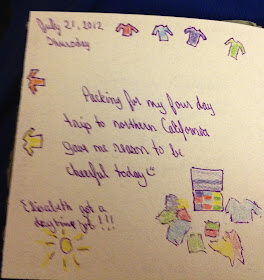 July 21, 2012
Thursday
Packing for my four day
trip to northern California
gave me reason to be
cheerful today
Elizabeth got a
daytime job!!!